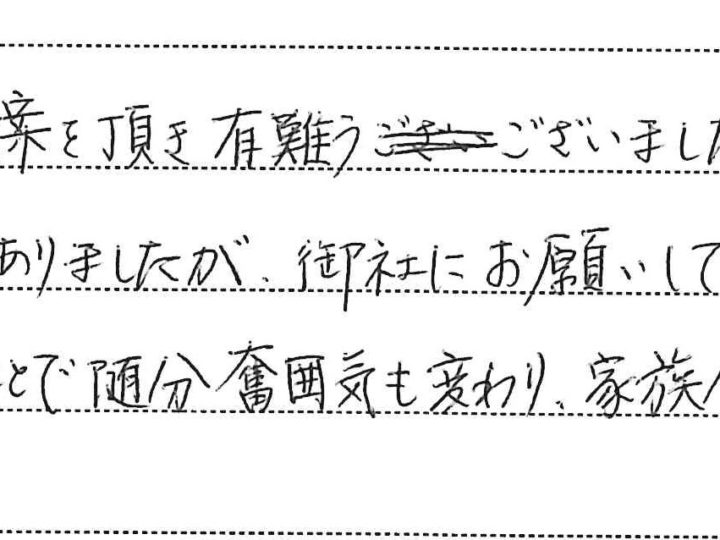 案を頂き有難うございました
ありましたが、御社にお願いして
とで随分奮囲気も変わり、家族